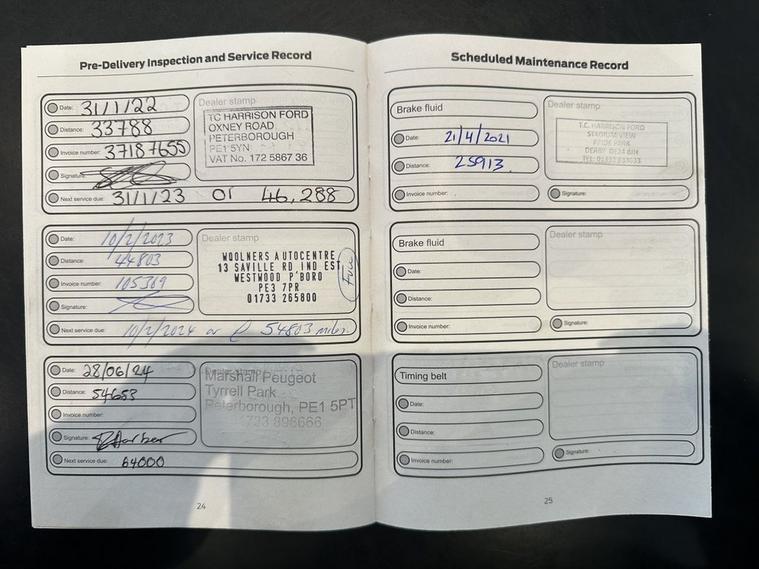 Pre-Delivery Inspection and Service Record
Date: 31/1/22
Distance: 33788
Invoice number: 37187655
Signature:
Next service due: 31/1/23 or 46,288
Dealer stamp
TC HARRISON FORD
OXNEY ROAD
PETERBOROUGH
PE1 5YN
VAT No. 172 5867 36
Date: 10/2/2023
Distance: 44803
Invoice number: 105369
Signature:
Next service due: 10/2/2024 or 54803 miles.
Dealer stamp
WOOLNERS AUTOCENTRE
13 SAVILLE RD IND EST
WESTWOOD P'BORO
PE3 7PR
01733 265800
Full
Date: 28/06/24
Distance: 54653
Invoice number:
Signature:
Next service due: 64000
Dealer stamp
Marshall Peugeot
Tyrrell Park
Peterborough, PE1 5PT
733 896666
24
Scheduled Maintenance Record
Brake fluid
Date: 21/4/2021
Distance: 25913
Invoice number:
Dealer stamp
T.C. HARRISON FORD
STADIUM VIEW
PRIDE PARK
DERBY
Signature:
Brake fluid
Date:
Distance:
Invoice number:
Dealer stamp
Signature:
Timing belt
Date:
Distance:
Invoice number:
Dealer stamp
Signature:
25